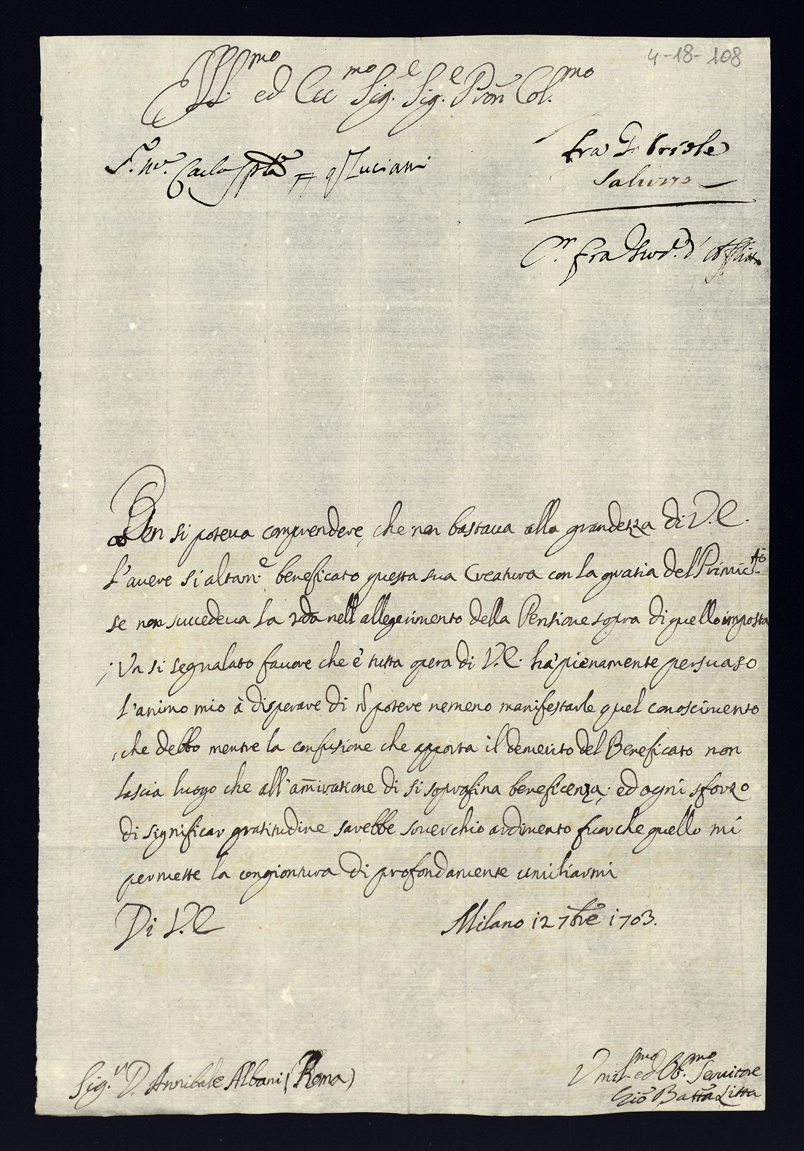 4-18-108
Ill.mo ed Ecc.mo Sig.e Sig.e Pron Col.mo
fra Gabriele
Saluzzo
Carlo
Luciani
fra
Ben si poteva comprendere, che non bastava alla grandezza di V.E.
l'avere si altam.e beneficato questa sua Creatura con la gratia del Primic.to
se non succedeva la 2da nell'allegerimento della Pensione sopra di quello imposta
; Un si segnalato favore che è tutta opera di V.E. ha pienamente persuaso
l'animo mio à disperare di ñ potere nemeno manifestarle quel conoscimento
, che debbo mentre la confusione che apporta il demerito del Beneficato non
lascia luogo che all'am̃iratione di si soprafina beneficenza; ed ogni sforzo
di significar gratitudine sarebbe soverchio ardimento fuor che quello mi
permette la congiontura di profondamente umiliarmi
Di V.E.
Milano 12 7bre 1703.
Sig.r D. Annibale Albani (Roma)
Umil.mo ed Ob.mo Servitore
Gio Batta Litta